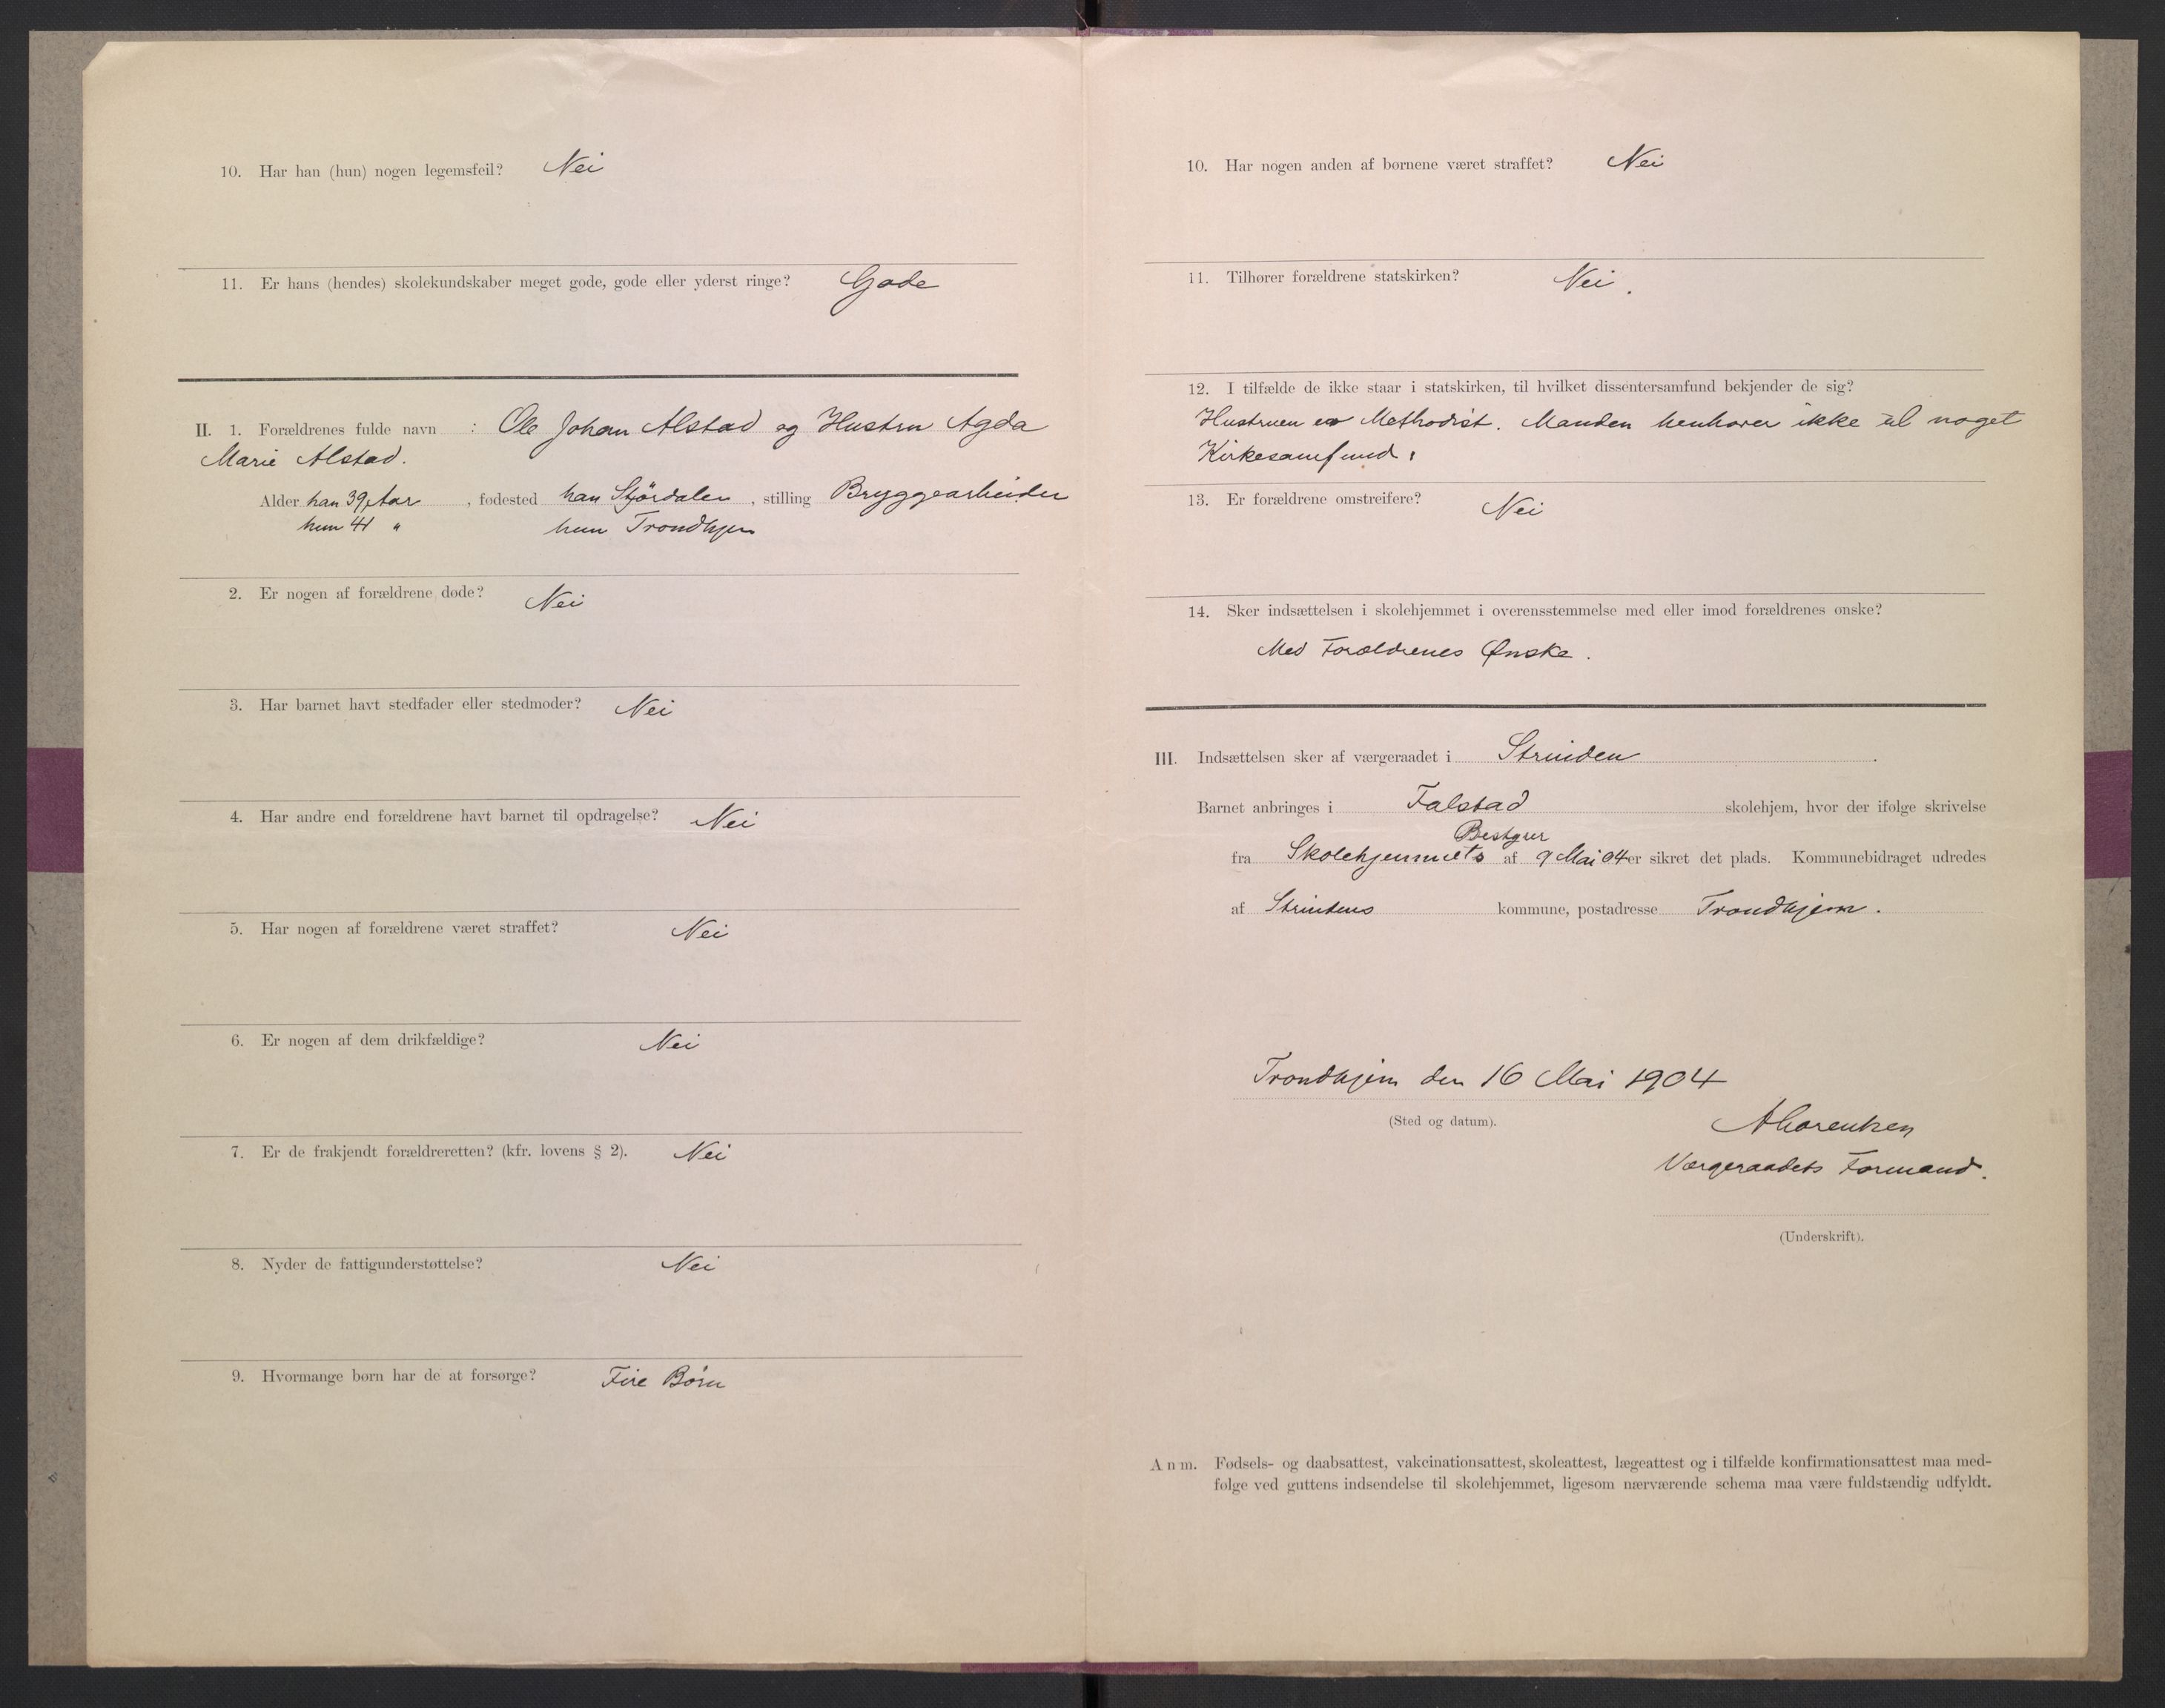 10. Har han (hun) nogen legemsfeil? Nei
11. Er hans (hendes) skolekundskaber meget gode, gode eller yderst ringe? Gode
II. 1. Forældrenes fulde navn : Ole Johan Alstad og Hustru Agda
Marie Alstad.
Alder han 39 Aar, fødested han Stjørdalen, stilling Bryggearbeider
hun 41 " hun Trondhjem
2. Er nogen af forældrene døde? Nei
3. Har barnet havt stedfader eller stedmoder? Nei
4. Har andre end forældrene havt barnet til opdragelse? Nei
5. Har nogen af forældrene været straffet? Nei
6. Er nogen af dem drikfældige? Nei
7. Er de frakjendt forældreretten? (kfr. lovens § 2). Nei
8. Nyder de fattigunderstøttelse? Nei
9. Hvormange børn har de at forsørge? Fire Børn
10. Har nogen anden af børnene været straffet? Nei
11. Tilhører forældrene statskirken? Nei.
12. I tilfælde de ikke staar i statskirken, til hvilket dissentersamfund bekjender de sig?
Hustruen er Methodist. Manden henhører ikke til noget
Kirkesamfund.
13. Er forældrene omstreifere? Nei
14. Sker indsættelsen i skolehjemmet i overensstemmelse med eller imod forældrenes ønske?
Med Forældrenes Ønske.
III. Indsættelsen sker af værgeraadet i Strinden.
Barnet anbringes i Falstad skolehjem, hvor der ifølge skrivelse
Bestyrer
fra Skolehjemmets af 9 Mai 04 er sikret det plads. Kommunebidraget udredes
af Strindens kommune, postadresse Trondhjem.
Trondhjem den 16 Mai 1904
(Sted og datum).
Værgeraadets Formand.
(Underskrift).
Anm. Fødsels- og daabsattest, vakcinationsattest, skoleattest, lægeattest og i tilfælde konfirmationsattest maa med-
følge ved guttens indsendelse til skolehjemmet, ligesom nærværende schema maa være fuldstændig udfyldt.